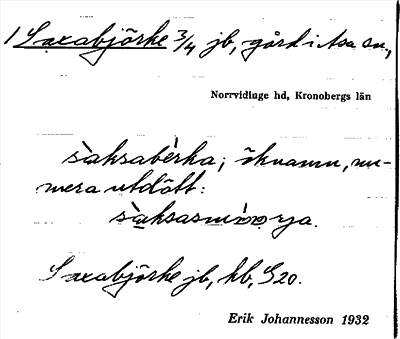 1 Saxabjörke 3/4 jb, gård i Asa sn.,
Norrvidinge hd, Kronobergs län
sàksabèrka; ìknamn, nu-
mera utdött:
sàksasmìnnorja.
Saxabjörke jb, kb, G20.
Erik Johannesson 1932